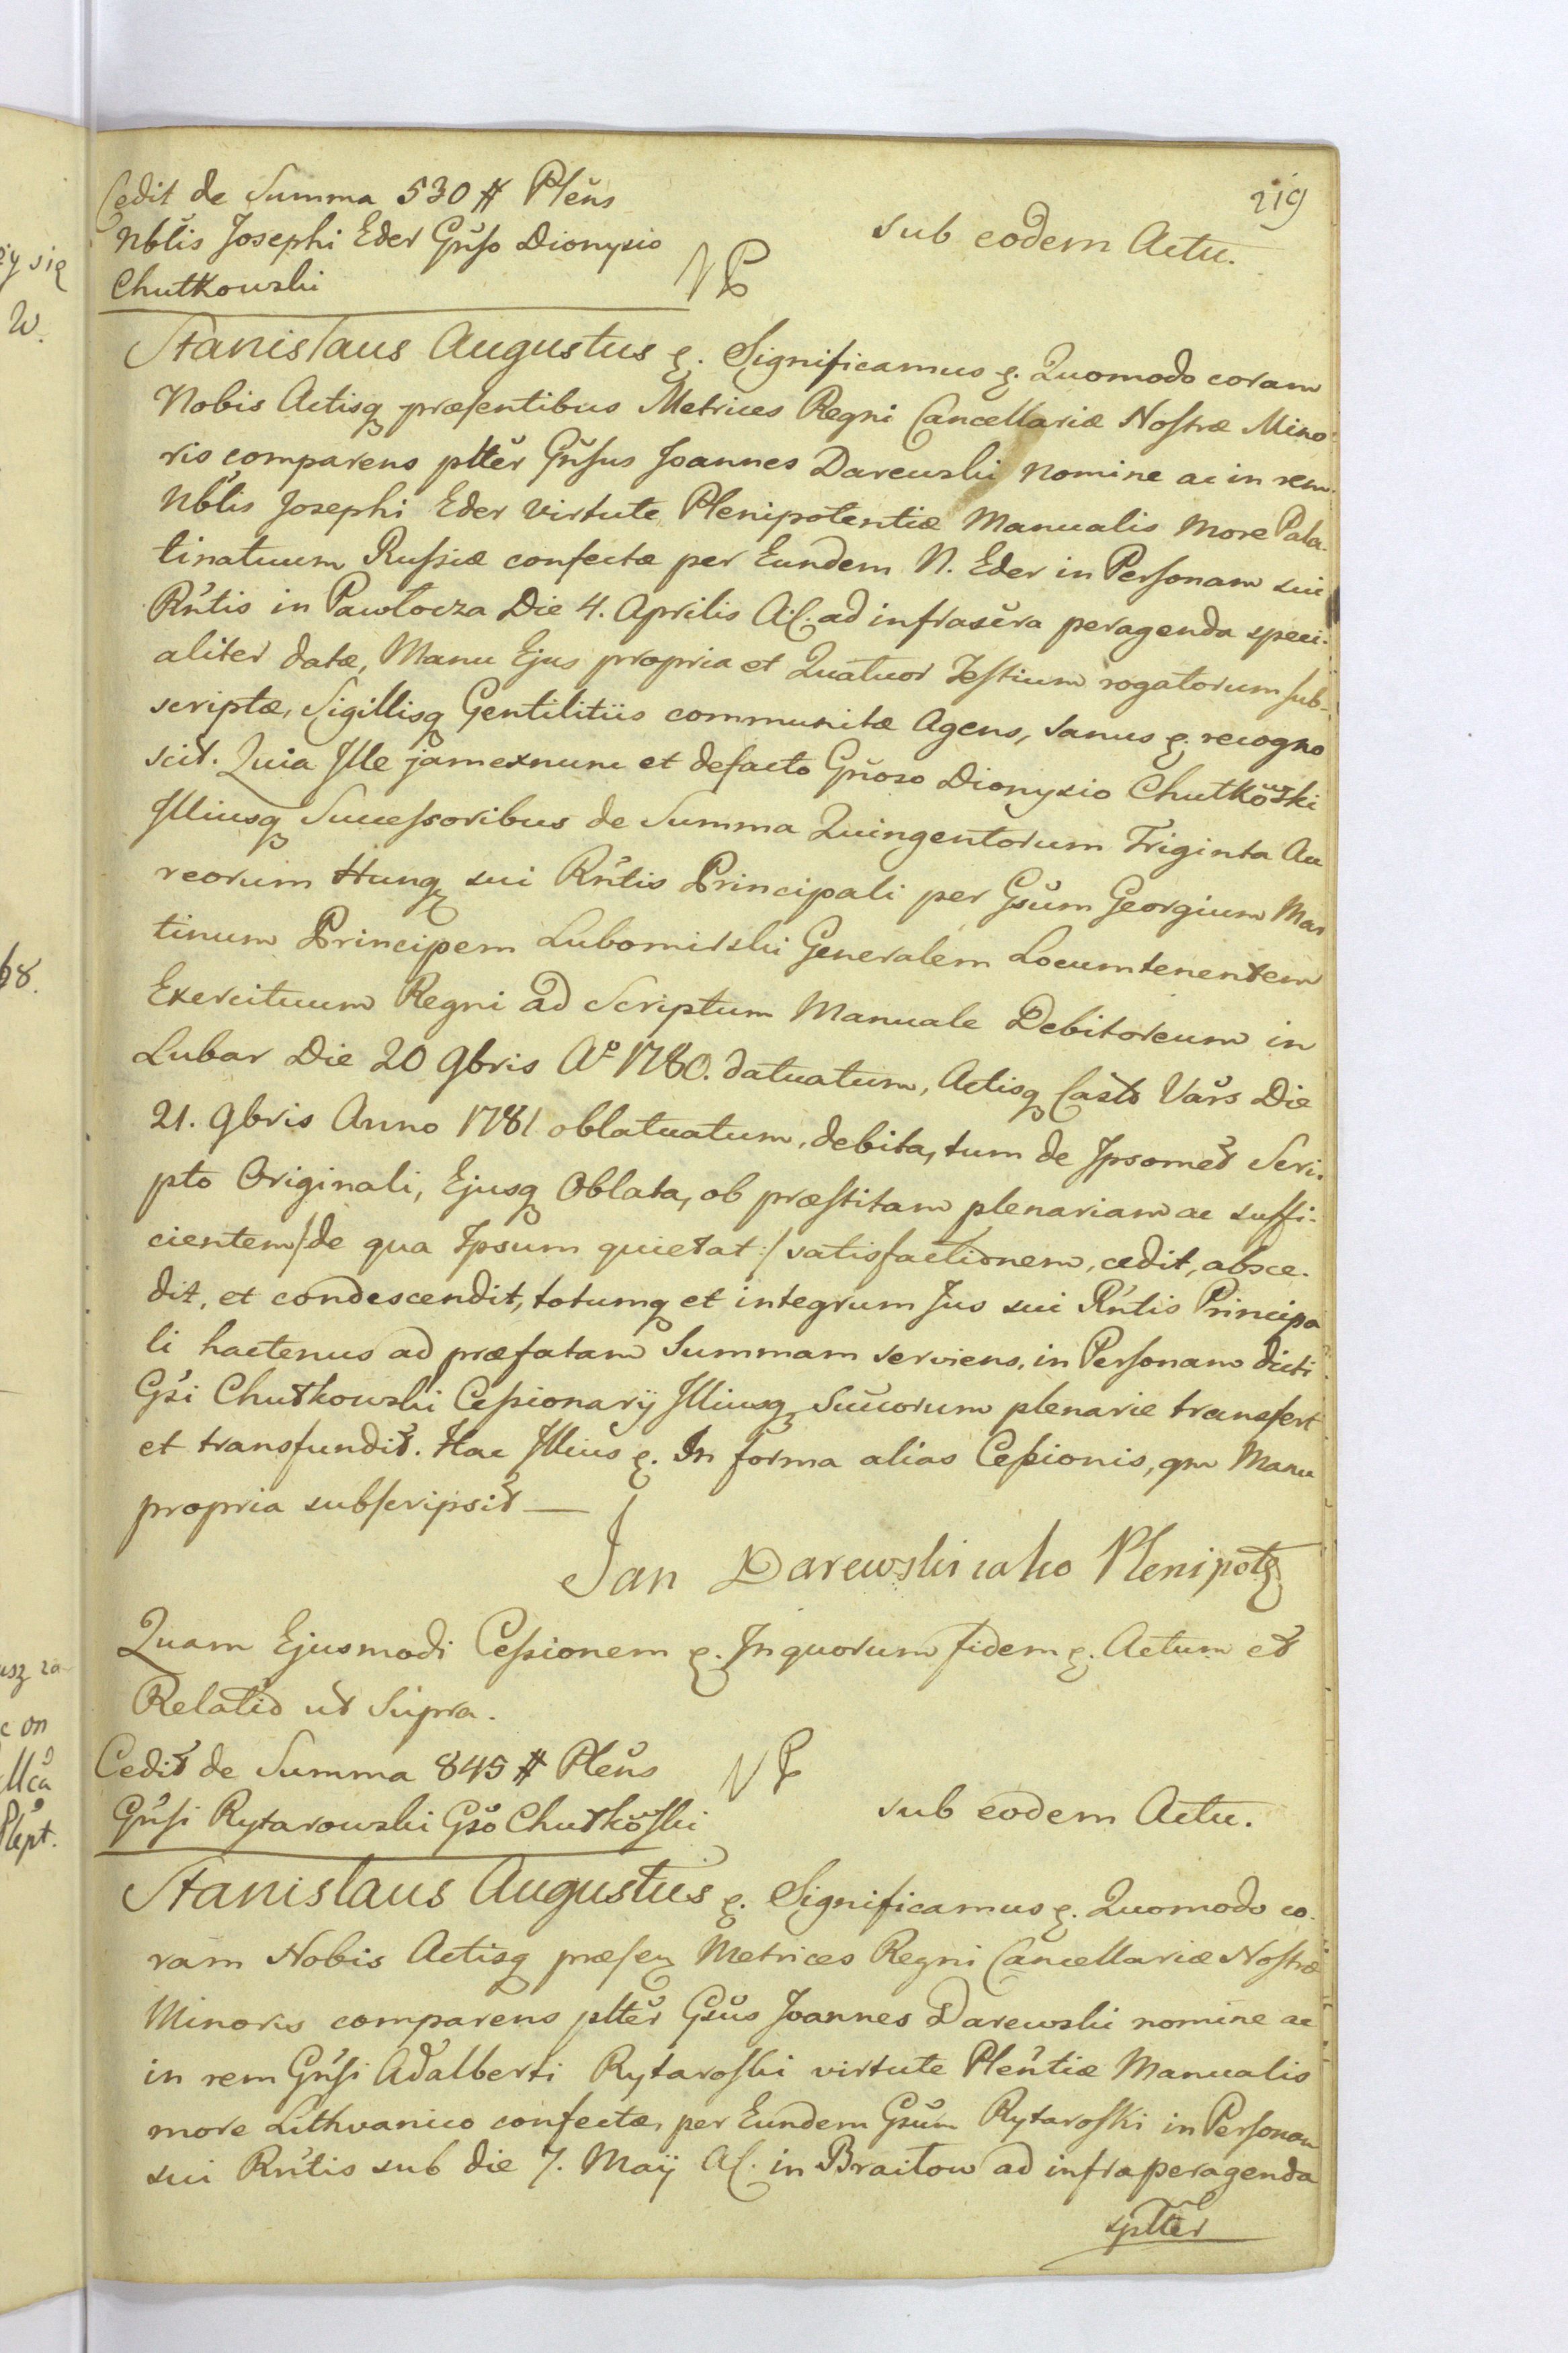 219
Cedit de Summa 530 # Plēns
Nblis Josephi Eder Gñso Dionysio
Chutkowski
sub eodem Actu.
Stanislaus Augustus &. Significamus &. Quomodo coram
Nobis Actisq præsentibus Metrices Regni Cancellariæ Nostræ Mino-
ris comparens pltēr Gñsus Joannes Darewski nomine ac in rem
Nblis Josephi Eder virtute Plenipotentiæ Manualis More Pala-
tinatuum Russiæ confectæ per Eundem N. Eder in Personam sui
Rñtis in Pawłocza Die 4. Aprilis A.C. ad infrascra peragenda speci-
aliter datæ, Manu Ejus propria et Quatuor Testium rogatorum sub-
scriptæ, Sigillisq Gentilitiis communitæ Agens, sanus &. recogno
scit. Quia Ille jam exnunc et defacto Gñoso Dionysio Chutkowski
Illiusq Successoribus de Summa Quingentorum Triginta Au
reorum Hung sui Rñtis Principali per Gsum Georgium Mar
tinum Principem Lubomirski Generalem Locumtenentem
Exercituum Regni ad Scriptum Manuale Debitoreum in
Lubar Die 20 9bris Aº 1780. datuatum, Actisq Casts Vars Die
21. 9bris Anno 1781 oblatuatum, debita, tum de Ipsomet Scri-
pto Originali, Ejusq Oblata, ob præstitam plenariam ac suffi-
cientem /: de qua Ipsum quietat :/ satisfactionem, cedit, absce-
dit, et condescendit, totumq et integrum Jus sui Rñtis Principa
li hactenus ad præfatam Summam serviens, in Personam dicti
Gsi Chutkowski Cessionarÿ Illiusq Succorum plenarie transfert
et transfundit. Hac Illius &. In forma alias Cessionis, qm Manu
propria subscripsit —
Jan Darewski iako Plenipotę
Quam Ejusmodi Cessionem &. In quorum fidem &. Actum et
Relatio ut Supra.
Cedit de Summa 845 # Plēns
Gñsi Rytarowski Gso Chutkoski
sub eodem Actu.
Stanislaus Augustus &. Significamus &. Quomodo co-
ram Nobis Actisq præsen Metrices Regni Cancellariæ Nostræ
Minoris comparens pltēr Gsus Joannes Darewski nomine ac
in rem Gñsi Adalberti Rytaroski virtute Plentiæ Manualis
more Lithvanico confectæ, per Eundem Gsum Rytaroski in Personam
sui Rñtis sub die 7. Maÿ A.C. in Braitow ad infra peragenda
spltēr